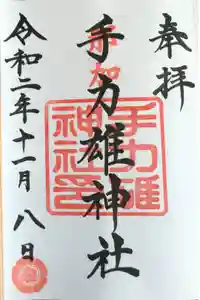 奉拝
手力雄神社
手力雄
神社印
令和二年十一月八日